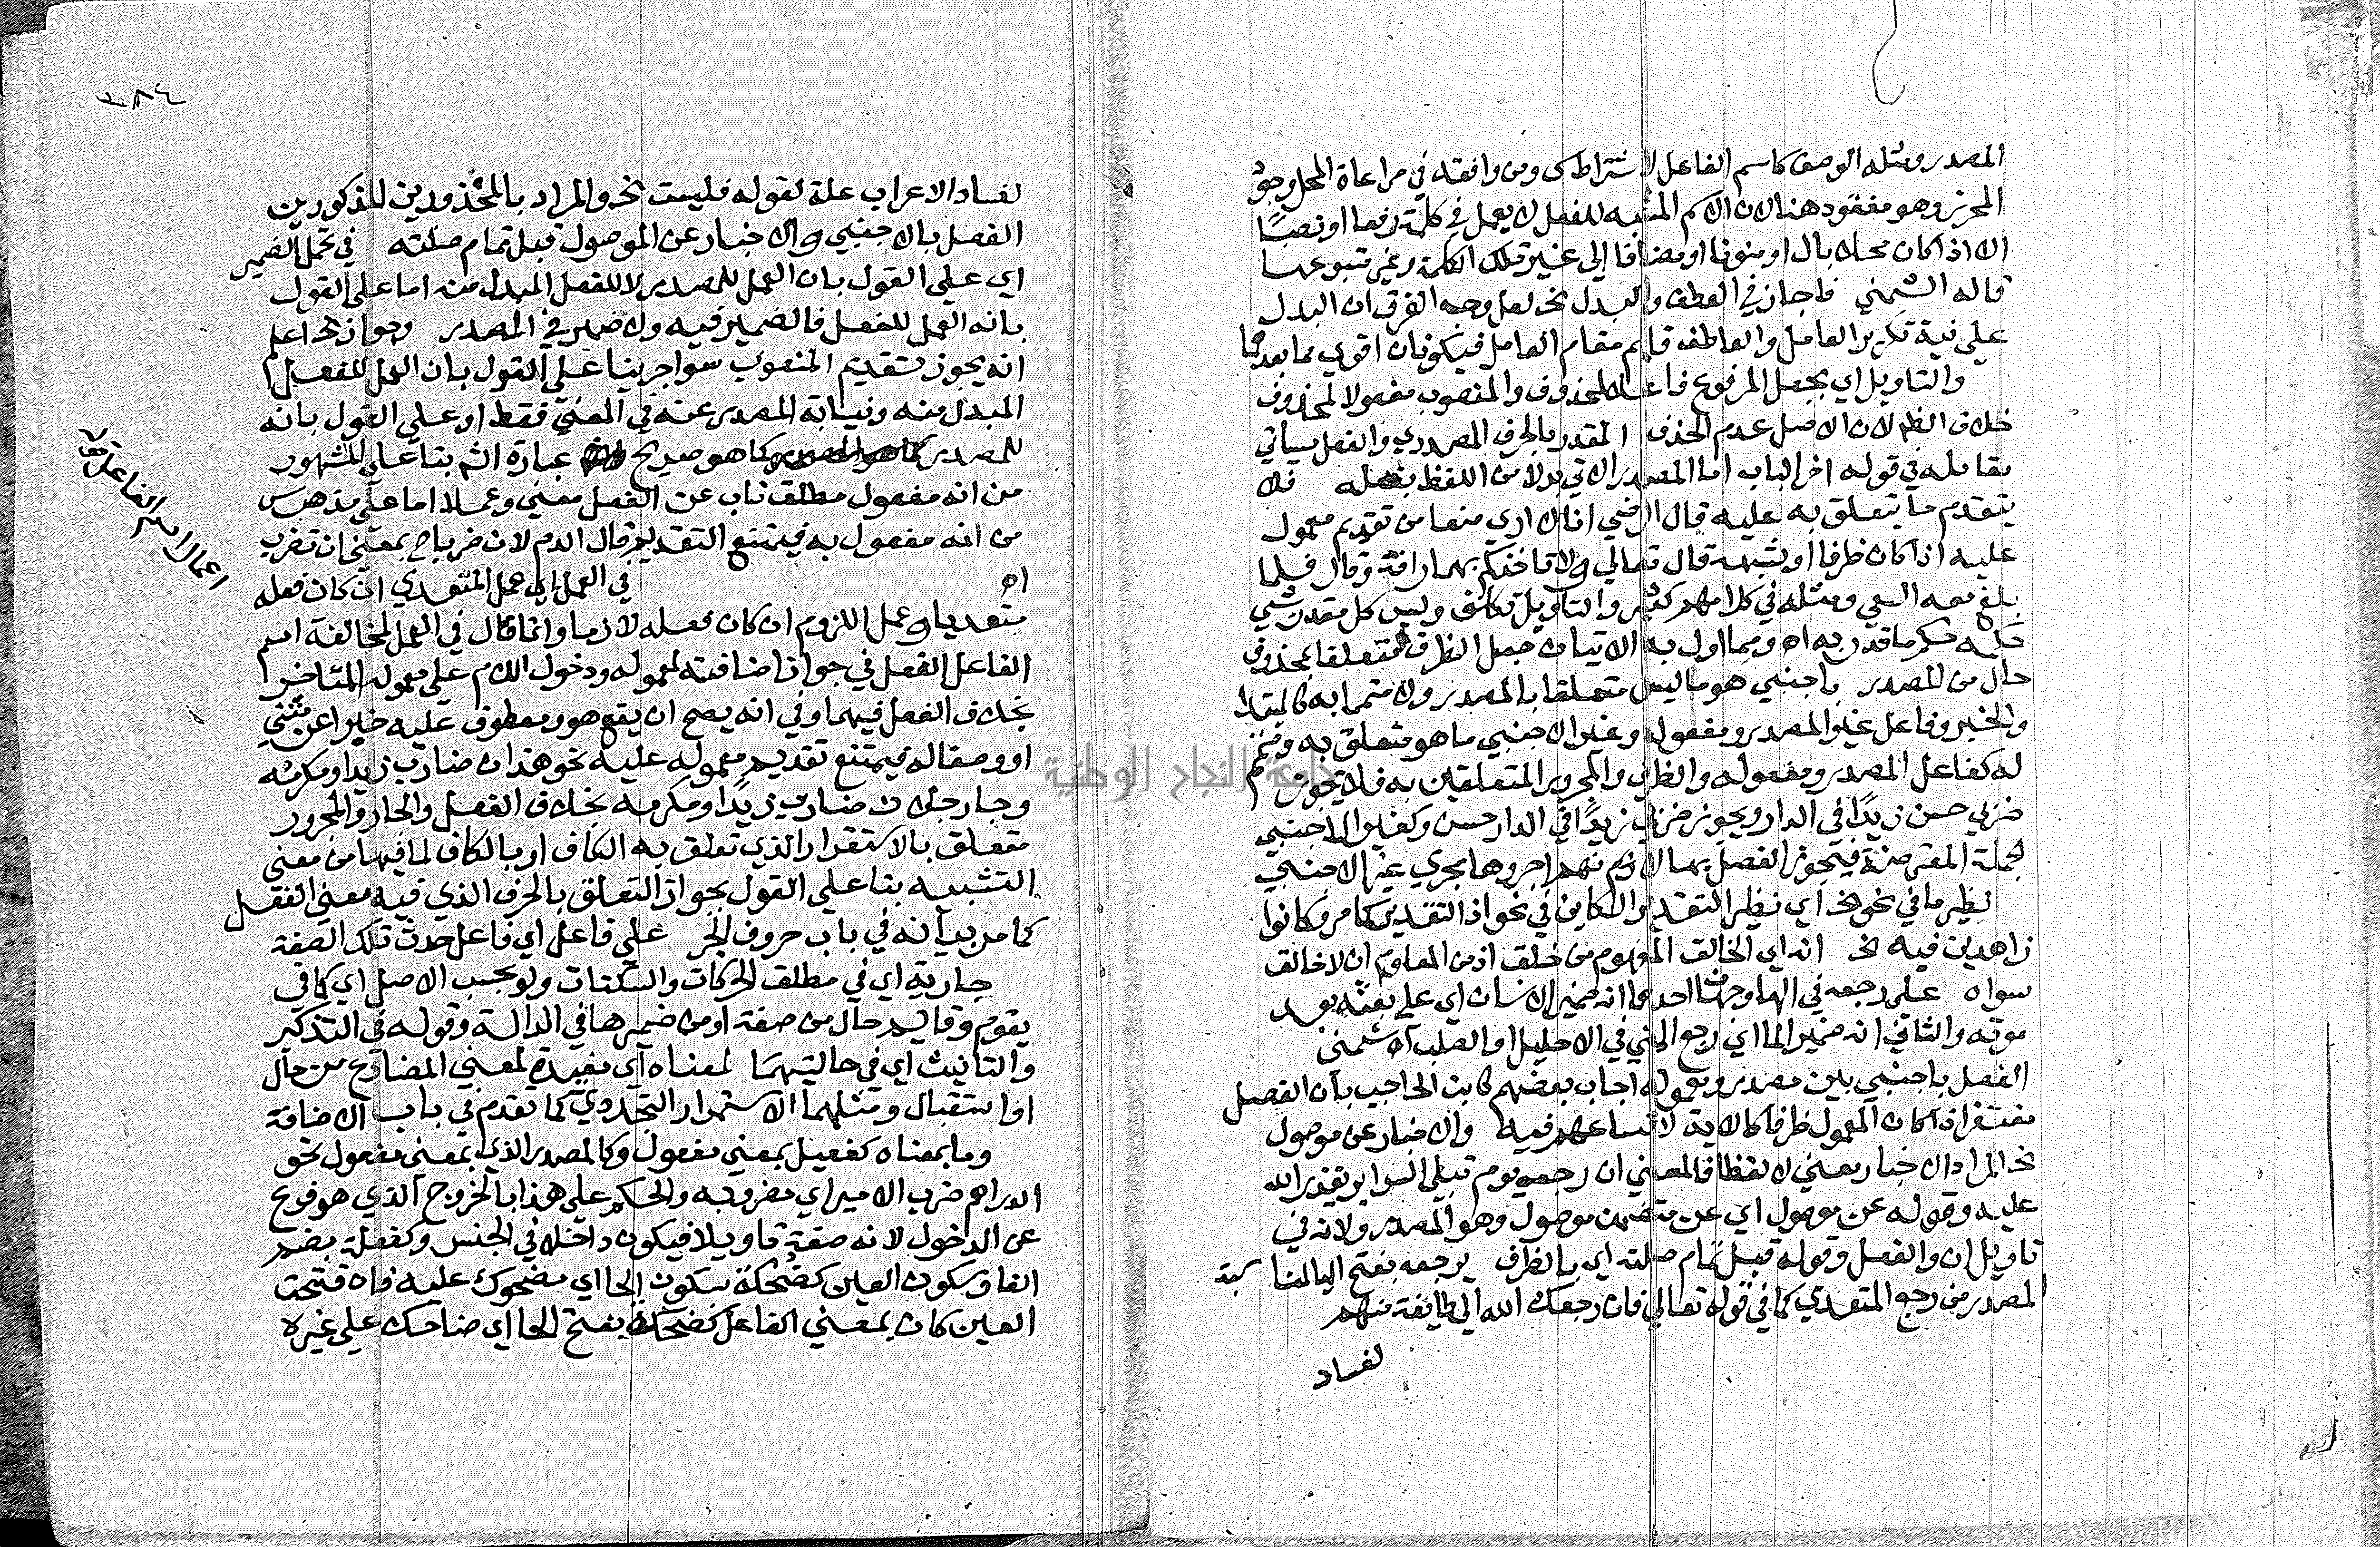 المصدر ومثله الوصف كاسم الفاعل لاشتراط س ومن وافقه في مراعاة المحل وجود
المحرز وهو مفقود هنا لان الاسم المشبه للفعل لا يعمل في كلمة رفعا او نصبًا
الا اذا كان محلا بال او منونا او مضافا إلى غير تلك الكلمة وغير متبوعها
قاله الشمني فاجاز في العطف والبدل نخ لعل وجه الفرق ان البدل
على نية تكرير العامل والعاطف قايم مقام العامل فيكونان اقوى مما بعدهما
والتاويل اي بجعل المرفوع فاعلا لمحذوف والمنصوب مفعولا لمحذوف
خلاف الظ لان الاصل عدم الحذف المقدر بالحرف المصدري والفعل سياتي
مقابله في قوله اخر الباب اما المصدر الاتي بدلا من اللفظ بفعله فلا
يتقدم ما يتعلق به عليه قال الرضي انا لا ارى منعا من تقديم معموله
عليه اذا كان ظرفا او شبهه قال تعالى ولا تاخذكم بهما رافة وقال فلما
بلغ معه السعي ومثله في كلامهم كثير والتاويل تكلف وليس كل مقدر بشيء
حكمه حكم ما قدر به اه ومما اول به الايتان جعل الظرف متعلقا بمحذوف
حال من المصدر باجنبي هو ما ليس متعلقا بالمصدر ولا متمما به كالمبتدا
والخبر وفاعل غير المصدر ومفعوله وغير الاجنبي ما هو متعلق به ومتمم
له كفاعل المصدر ومفعوله والظرف والمجرور المتعلقين به فلا يجوز
ضربي حسن زيدًا في الدار ويجوز ضربي زيدًا في الدار حسن وكغير الاجنبي
الجملة المعترضة فيجوز الفصل بها لانهم اجروها مجرى غير الاجنبي
نظير ما في نحو نخ اي نظير التقدير الكاين في نحو اذ التقدير كما مر وكانوا
زاهدين فيه نخ انه اي الخالق المفهوم من خلق اذ من المعلوم ان لا خالق
سواه على رجعه في الها وجهان احدهما انه ضمير الانسان اي على بعثه بعد
موته والثاني انه ضمير الما اي رجع المني في الاحليل او الصلب اه شمني
الفصل باجنبي بين مصدر ومعموله اجاب بعضهم كابن الحاجب بان الفصل
مغتفر اذا كان المعمول ظرفا كالاية لاتساعهم فيه والاخبار عن موصول
نخ المراد الاخبار معنى لا لفظا فالمعنى ان رجعه يوم تبلى السراير يقدر الله
عليه وقوله عن موصول اي عن متضمن موصول وهو المصدر ولانه في
تاويل ان والفعل وقوله قبل تمام صلته اي بالظرف يرجعه بفتح اليا المناسبة
لمصدر من رجع المتعدي كما في قوله تعالى فان رجعك الله الى طايفة منهم
لفساد
لفساد الاعراب علة لقوله فليست نخ والمراد بالمحذورين المذكورين
الفصل بالاجنبي والاخبار عن الموصول قبل تمام صلته في تحمل الضمير
اي على القول بان العمل للمصدر لا للفعل المبدل منه اما على القول
بانه العمل للفعل فالضمير فيه ولا ضمير في المصدر وجواز نخ اعلم
انه يجوز تقديم المنصوب سوا جرينا على القول بان العمل للفعل
المبدل منه ونيابة المصدر عنه في المعنى فقط او على القول بانه
للمصدر كما هو صريح عبارة الشم بنا على المشهور
من انه مفعول مطلق ناب عن الفعل معنى وعملا اما على مذهب س
من انه مفعول به فيمتنع التقديم قال الدم لان ضربا ح بمعنى ان تضرب
اه في العمل اي عمل المتعدي ان كان فعله
متعديا وعمل اللزوم ان كان فعله لازما وانما قال في العمل لمخالفة اسم
الفاعل الفعل في جواز اضافته لمعموله ودخول اللام على معموله المتاخر
بخلاف الفعل فيهما وفي انه يصح ان يقع هو ومعطوف عليه خبرا عن مثنى
او وصفا له فيمتنع تقديم معموله عليه نحو هذان ضارب زيدا ومكرمه
وجا رجلان ضارب زيدًا ومكرمه بخلاف الفعل والجار والمجرور
متعلق بالاستقرار الذي تعلق به الكاف او بالكاف لما فيها من معنى
التشبيه بنا على القول بجواز التعلق بالحرف الذي فيه معنى الفعل
كما مر بيانه في باب حروف الجر على فاعل اي فاعل حدث تلك الصفة
جارية اي في مطلق الحركات والسكنات ولو بحسب الاصل اي كما في
يقوم وقايم حال من صفة او من ضميرها في الدالة وقوله في التذكير
والتانيث اي في حالتيهما لمعناه اي مفيدة لمعنى المضارع من حال
او استقبال ومثلهما الاستمرار التجددي كما تقدم في باب الاضافة
وما بمعناه كفعيل بمعنى مفعول وكالمصدر الذي بمعنى مفعول نحو
الدراهم ضرب الامير اي مضروبه والحكم على هذا بالخروج الذي هو فرع
عن الدخول لانه صفة تاويلا فيكون داخلا في الجنس وكفعلة بضم
الفا وسكون العين كضحكة بسكون الحا اي مضحوك عليه فان فتحت
العين كان بمعنى الفاعل كضحكة بفتح الحا اي ضاحك على غيره
اعمال اسم الفاعل